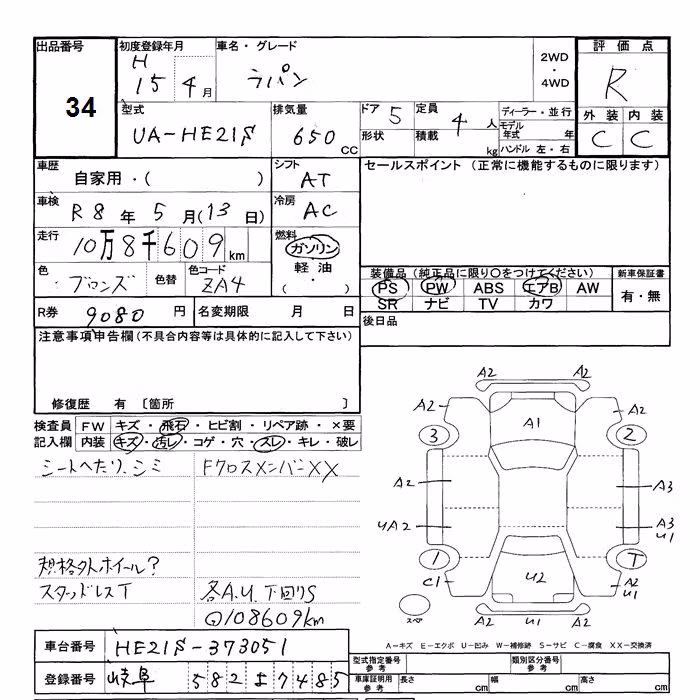 出品番号
34
初度登録年月
H
15 4月
車名・グレード
ラパン
2WD
・
4WD
評価点
R
外装 内装
C C
型式
UA-HE21S
排気量
650
CC
ドア 5
形状
定員 4 人
積載 kg
ディーラー・並行
モデル年式 年
ハンドル 左・右
車歴
自家用・( )
シフト
AT
セールスポイント (正常に機能するものに限ります)
車検
R8 年 5 月(13 日)
冷房
AC
走行
10万8千609 km
燃料
ガソリン
・
軽油
・
( )
色
ブロンズ
色替
色コード
ZA4
装備品 (純正品に限り○をつけてください)
PS PW ABS エアB AW
SR ナビ TV カワ
新車保証書
有・無
R券 9080 円
名変期限 月 日
後日品
注意事項申告欄(不具合内容等は具体的に記入して下さい)
修復歴 有 〔箇所 〕
検査員 FW キズ・飛石・ヒビ割・リペア跡・×要
記入欄 内装 キズ・汚レ・コゲ・穴・スレ・キレ・破レ
シートへたり、シミ
FクロスメンバーXX
規格外ホイール?
スタッドレスT
各A.U 下回りS
108609km
A2 A2
A2 A1 A2
3 2
A2 A3
UA2 A3
U1
1 T
C1 U2 A2
U1
スペア
A2 U1 A2
A-キズ E-エクボ U-凹み W-補修跡 S-サビ C-腐食 XX-交換済
車台番号 HE21S-373051
登録番号 岐阜 582 え 7485
型式指定番号
参考
類別区分番号
参考
車庫証明用
参考
長さ cm 幅 cm 高さ cm